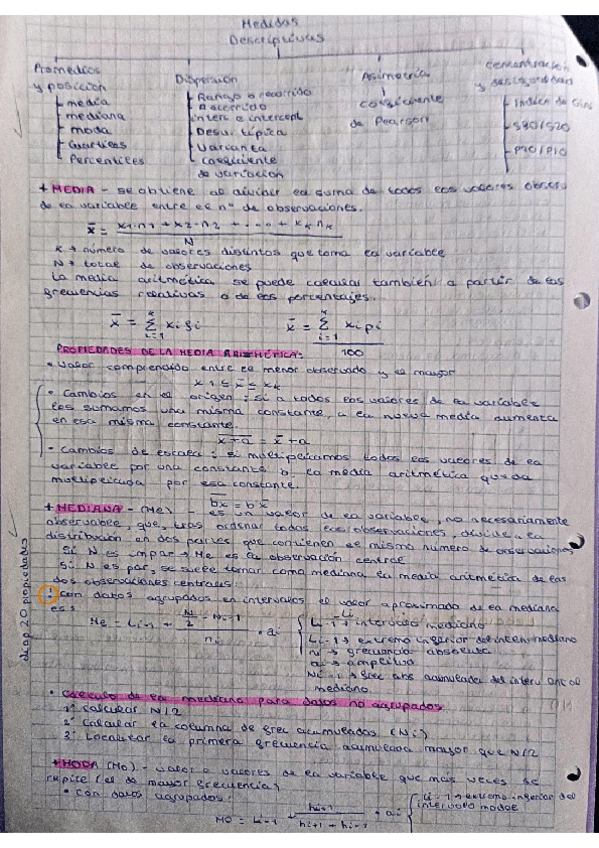 Medidas
Descriptivas
Promedios
y posición
- media
- mediana
- moda
- Cuartiles
- Percentiles
Dispersión
- Rango o recorrido
- Recorrido
- Desv. típica
- Varianza
- coeficiente
de variación
Asimetría
coeficiente
de Pearson
Concentración
y desigualdad
- Indice de Gini
- S80/S20
- P90/P10
+ MEDIA - se obtiene al dividir la suma de todos los valores
de la variable entre el nº de observaciones.
x̄ = x1·n1 + x2·n2 + ... + xk nk / N
K → número de valores distintos que toma la variable
N → total de observaciones
La media aritmética se puede calcular también a partir de las
frecuencias relativas o de los porcentajes.
x̄ = Σ xi fi
x̄ = Σ xi pi / 100
PROPIEDADES DE LA MEDIA ARITMÉTICA:
• Valor comprendido entre el menor observado y el mayor
x1 ≤ x̄ ≤ xk
• Cambios en el origen: si a todos los valores de la variable
los sumamos una misma constante, la nueva media aumenta
en esa misma constante.
x+a = x̄ + a
• Cambios de escala: si multiplicamos todos los valores de la
variable por una constante b, la media aritmética queda
multiplicada por esa constante.
bx = b x̄
+ MEDIANA - (Me) - es un valor de la variable, no necesariamente
observable, que, tras ordenar todas las observaciones, divide a la
distribución en dos partes que contienen el mismo número de observaciones
Si N es impar → Me es la observación central
Si N es par, se suele tomar como mediana la media aritmética de las
dos observaciones centrales.
• con datos agrupados en intervalos el valor aproximado de la mediana
es:
Me = Li-1 + (N/2 - Ni-1) / ni · ai
intervalo mediano
Li-1 → extremo inferior del interv. mediano
ni → frecuencia absoluta
ai → amplitud
Ni-1 → frec abs acumulada del interv ant al
mediano
de ap 2.0 propiedades
• Cálculo de la mediana para datos no agrupados
1º calcular N/2
2º Calcular la columna de frec acumuladas (Ni)
3º Localizar la primera frecuencia acumulada mayor que N/2
+ MODA (Mo) - valor o valores de la variable que más veces se
repite (el de mayor frecuencia)
• con datos agrupados:
Mo = Li-1 + hi+1 / (hi+1 + hi-1) · ai
Li-1 → extremo inferior del
intervalo modal